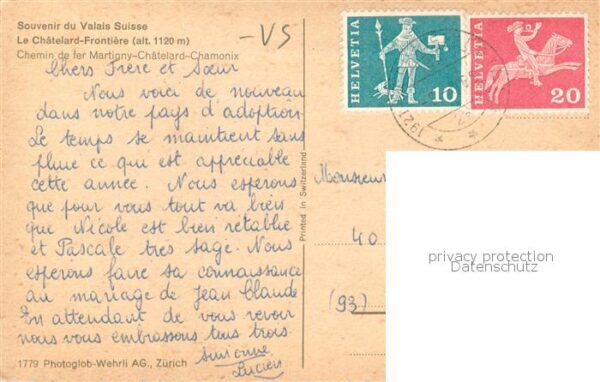 Souvenir du Valais Suisse
Le Châtelard-Frontière (alt. 1120 m)
Chemin de fer Martigny-Châtelard-Chamonix
-VS
Chers Frère et Sœur
Nous voici de nouveau
dans notre pays d'adoption
Le temps se maintient sans
pluie ce qui est appréciable
cette année. Nous espérons
que pour vous tout va bien
que Nicole est bien rétablie
et Pascale très sage. Nous
espérons faire sa connaissance
au mariage de Jean Claude
En attendant de vous revoir
nous vous embrassons tous trois
Simonne
Lucien
1779 Photoglob-Wehrli AG., Zürich
Printed in Switzerland
HELVETIA
10
HELVETIA
20
1921
Monsieur
40
(93)
privacy protection
Datenschutz